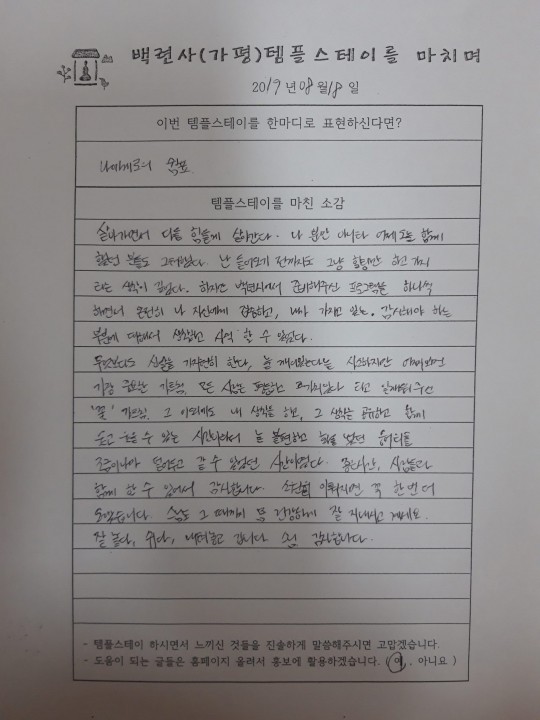 백련사(가평)템플스테이를 마치며
2019년 08월 18일
이번 템플스테이를 한마디로 표현하신다면?
나에게로의
템플스테이를 마친 소감
살아가면서 다들 힘들게 살아간다. 나 뿐만 아니라 어제 오늘 함께
했던 분들도 그러했다. 난 들어오기 전까지도 그냥 힐링만 하고 가지
라는 생각이 컸었다. 하지만 백련사에서 준비해주신 프로그램을 하나씩
해면서 온전히 나 자신에게 집중하고, 내가 가지고 있는, 감사해야 하는
부분에 대해서 생각하고 사색 할 수 있었다.
무엇보다도 신발을 가지런히 한다, 늘 깨어있는다는 사소하지만 어쩌보면
가장 중요한 가르침, 모든 사람은 평등하고 라고 일깨워주신
가르침. 그 이외에도 내 생각을 하고, 그 생각을 공유하고 함께
웃고 수 있는 시간이라서 늘 불편하고 했던 응어리를
조금이나마 덜어두고 갈 수 있었던 시간이었다. 좋은시간, 사람들과
함께 할 수 있어서 감사합니다. 소원 이뤄지면 꼭 한번 더
오겠습니다. 스님도 그 때까지 몸 건강하게 잘 지내시고 계세요.
잘 놀다, 쉬다, 내려놓고 갑니다. 감사합니다.
- 템플스테이 하시면서 느끼신 것들을 진솔하게 말씀해주시면 고맙겠습니다.
- 도움이 되는 글들은 홈페이지 올려서 홍보에 활용하겠습니다. ( 예, 아니요 )